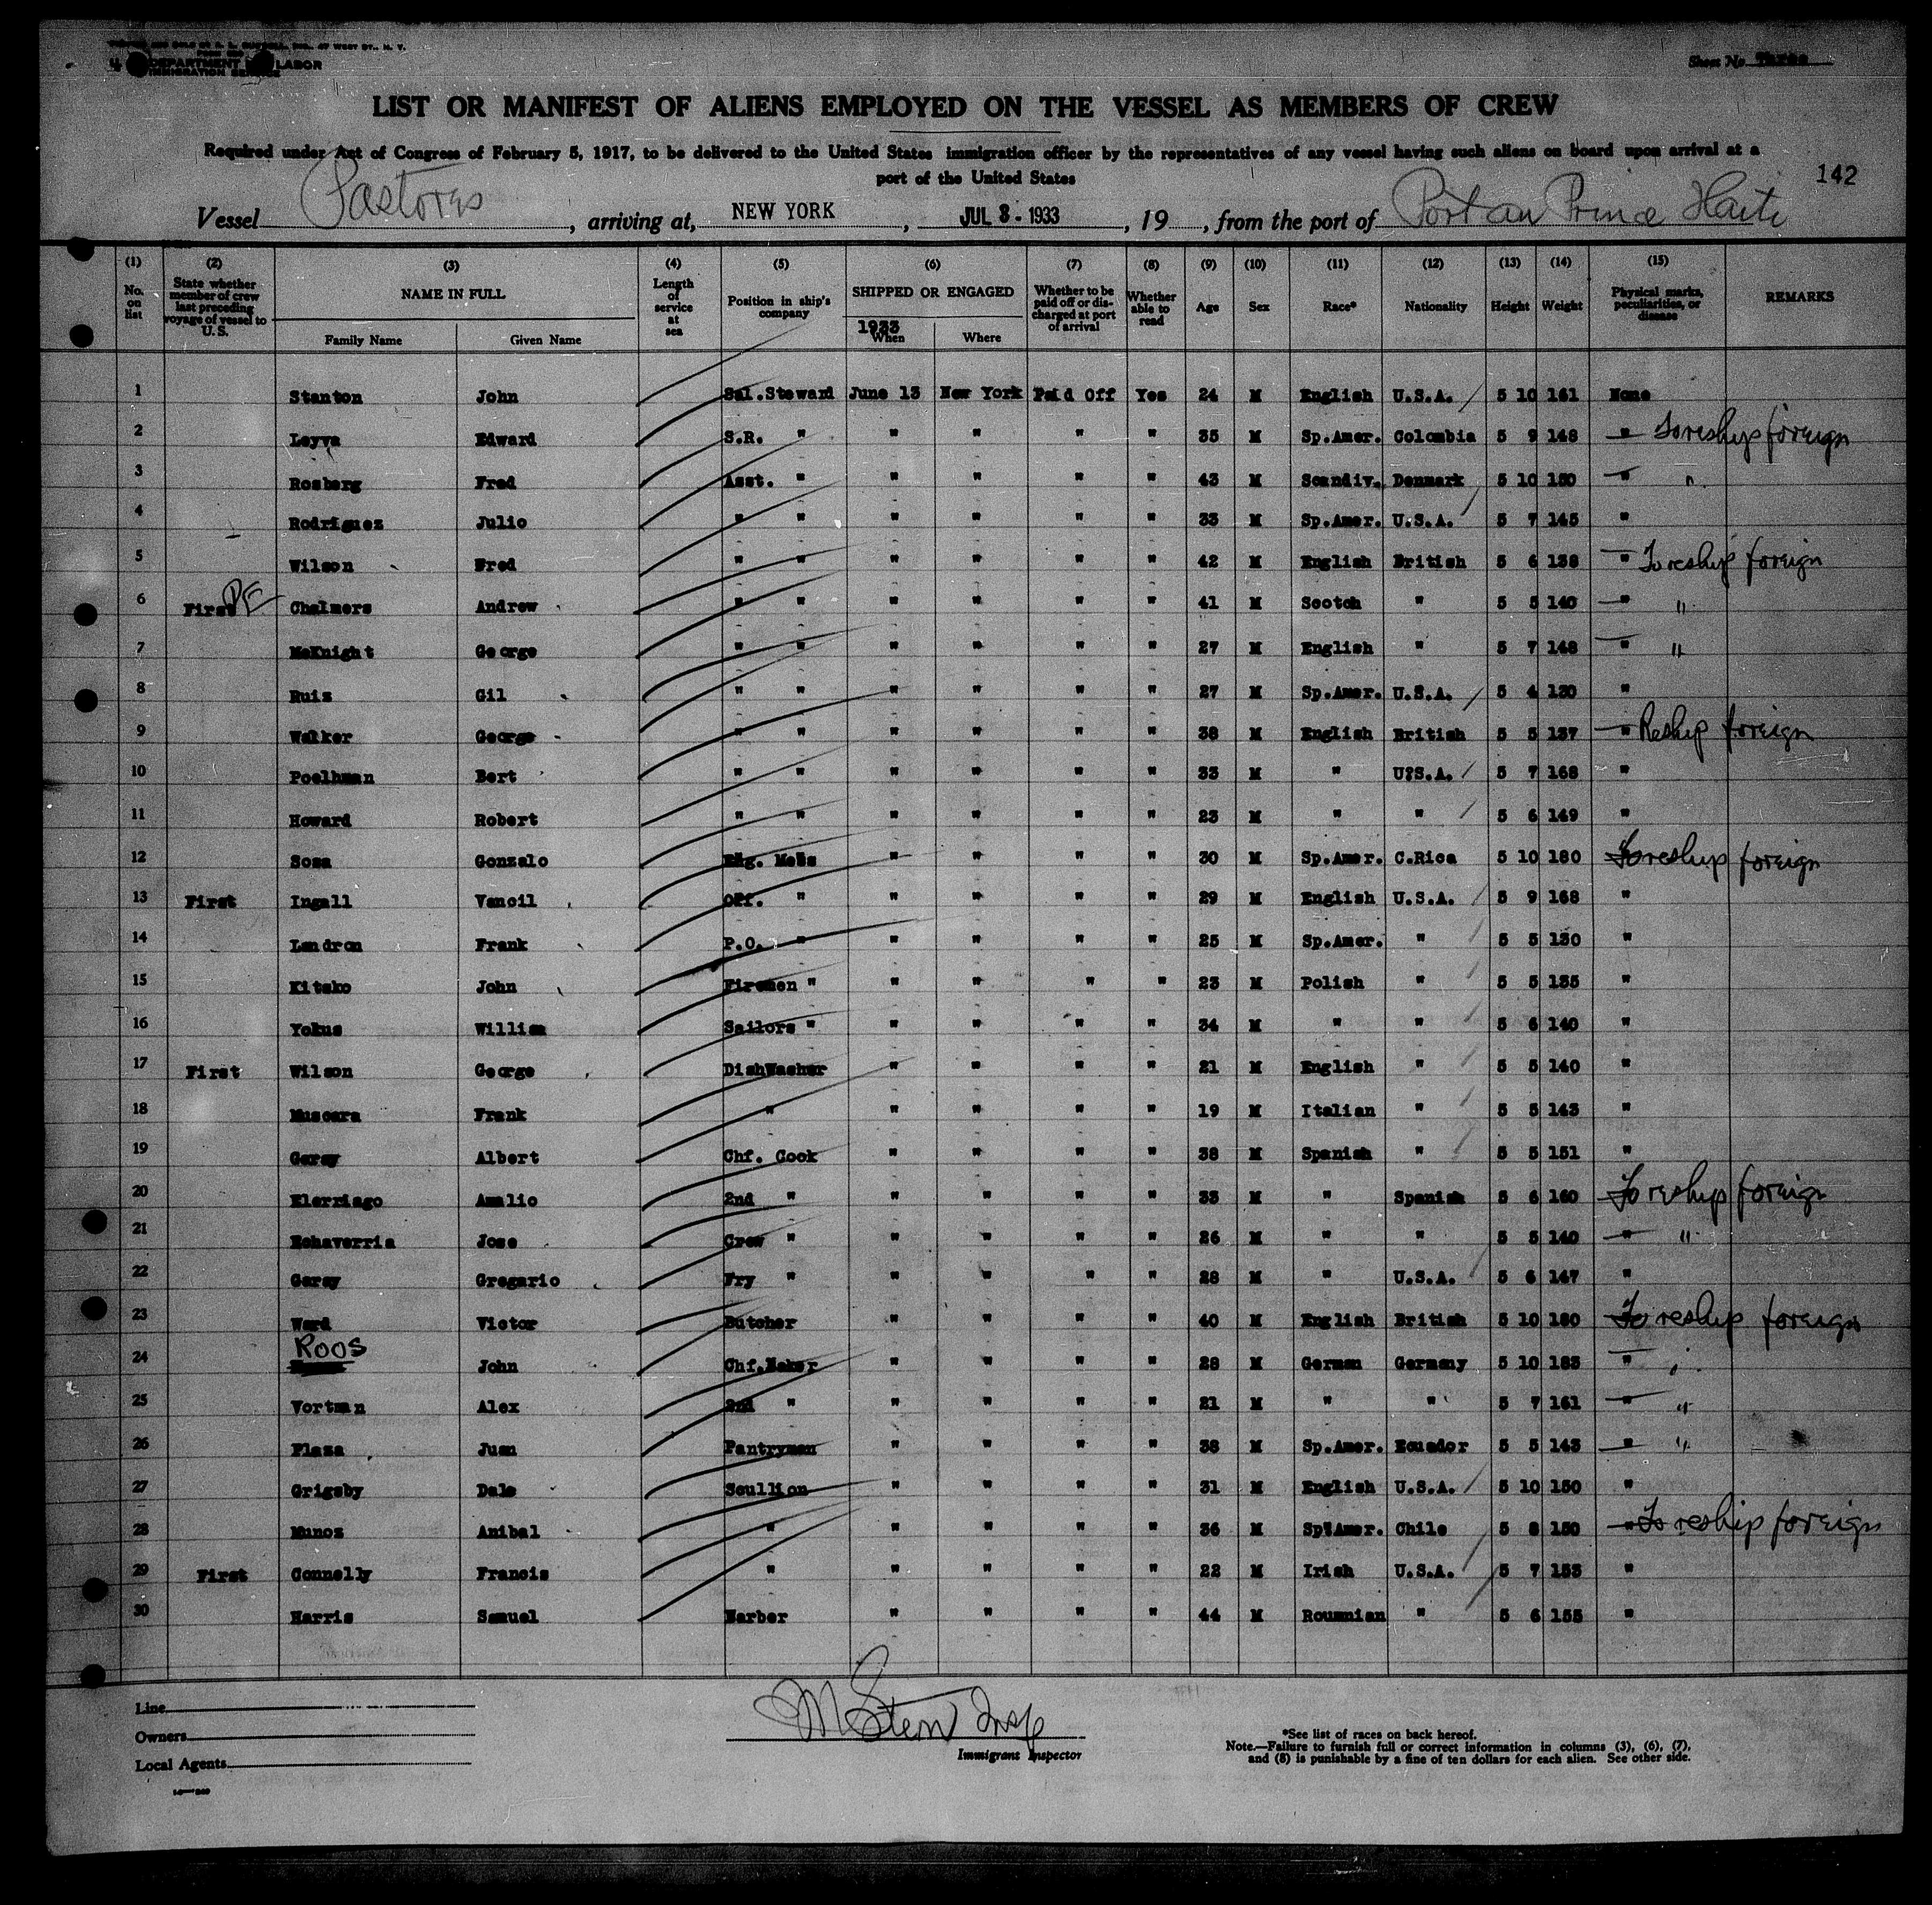 DEPARTMENT LABOR
IMMIGRATION SERVICE
Sheet No Three
LIST OR MANIFEST OF ALIENS EMPLOYED ON THE VESSEL AS MEMBERS OF CREW
Required under Act of Congress of February 5, 1917, to be delivered to the United States immigration officer by the representatives of any vessel having such aliens on board upon arrival at a
port of the United States
142
Vessel Pastores, arriving at, NEW YORK, JUL 3 - 1933, 19, from the port of Port au Prince Haiti
(1) (2) (3) (4) (5) (6) (7) (8) (9) (10) (11) (12) (13) (14) (15)
No. on list State whether member of crew last preceding voyage of vessel to U. S. NAME IN FULL Length of service at sea Position in ship's company SHIPPED OR ENGAGED Whether to be paid off or discharged at port of arrival Whether able to read Age Sex Race* Nationality Height Weight Physical marks, peculiarities, or disease REMARKS
Family Name Given Name 1933 When Where
1 Stanton John Sal.Steward June 13 New York Paid Off Yes 24 M English U.S.A. 5 10 161 None
2 Leyva Edward S.R. " " " " " 35 M Sp.Amer. Colombia 5 9 148 " To reship foreign
3 Rosberg Fred Asst. " " " " " 43 M Scandiv. Denmark 5 10 150 " "
4 Rodriguez Julio " " " " " " 33 M Sp.Amer. U.S.A. 5 7 145 "
5 Wilson Fred " " " " " " 42 M English British 5 6 138 " To reship foreign
6 First PE Chalmers Andrew " " " " " " 41 M Scotch " 5 5 140 " "
7 McKnight George " " " " " " 27 M English " 5 7 148 " "
8 Ruiz Gil " " " " " " 27 M Sp.Amer. U.S.A. 5 4 130 "
9 Walker George " " " " " " 38 M English British 5 5 137 " Reship foreign
10 Poelhman Bert " " " " " " 33 M " U?S.A. 5 7 168 "
11 Howard Robert " " " " " " 23 M " " 5 6 149 "
12 Sosa Gonzalo Eng. Mess " " " " 30 M Sp.Amer. C.Rica 5 10 180 To reship foreign
13 First Ingall Vancil Off. " " " " " 29 M English U.S.A. 5 9 168 "
14 Landron Frank P.O. " " " " " 25 M Sp.Amer. " 5 5 130 "
15 Kitsko John Firemen " " " " " 23 M Polish " 5 5 135 "
16 Yokus William Sailors " " " " " 34 M " " 5 6 140 "
17 First Wilson George DishWasher " " " " 21 M English " 5 5 140 "
18 Muscara Frank " " " " " 19 M Italian " 5 5 143 "
19 Garay Albert Chf. Cook " " " " 38 M Spanish " 5 5 151 "
20 Elerriago Amalio 2nd " " " " " 33 M " Spanish 5 6 160 To reship foreign
21 Echaverria Jose Crew " " " " " 26 M " " 5 5 140 " "
22 Garay Gregario Fry " " " " " 28 M " U.S.A. 5 6 147 "
23 Ward Victor Butcher " " " " 40 M English British 5 10 180 To reship foreign
24 ROOS John Chf.Baker " " " " 28 M German Germany 5 10 183 " "
25 Vortman Alex 2nd " " " " " 21 M " " 5 7 161 " "
26 Plaza Juan Pantryman " " " " 38 M Sp.Amer. Ecuador 5 5 143 " "
27 Grigsby Dale Scullion " " " " 31 M English U.S.A. 5 10 150 "
28 Munoz Anibal " " " " " 36 M Sp.Amer. Chile 5 8 150 " To reship foreign
29 First Connelly Francis " " " " " 22 M Irish U.S.A. 5 7 153 "
30 Harris Samuel Barber " " " " 44 M Roumnian " 5 6 155 "
Line
Owners
Local Agents
M Stern Insp
Immigrant Inspector
*See list of races on back hereof.
Note.—Failure to furnish full or correct information in columns (3), (6), (7),
and (8) is punishable by a fine of ten dollars for each alien. See other side.